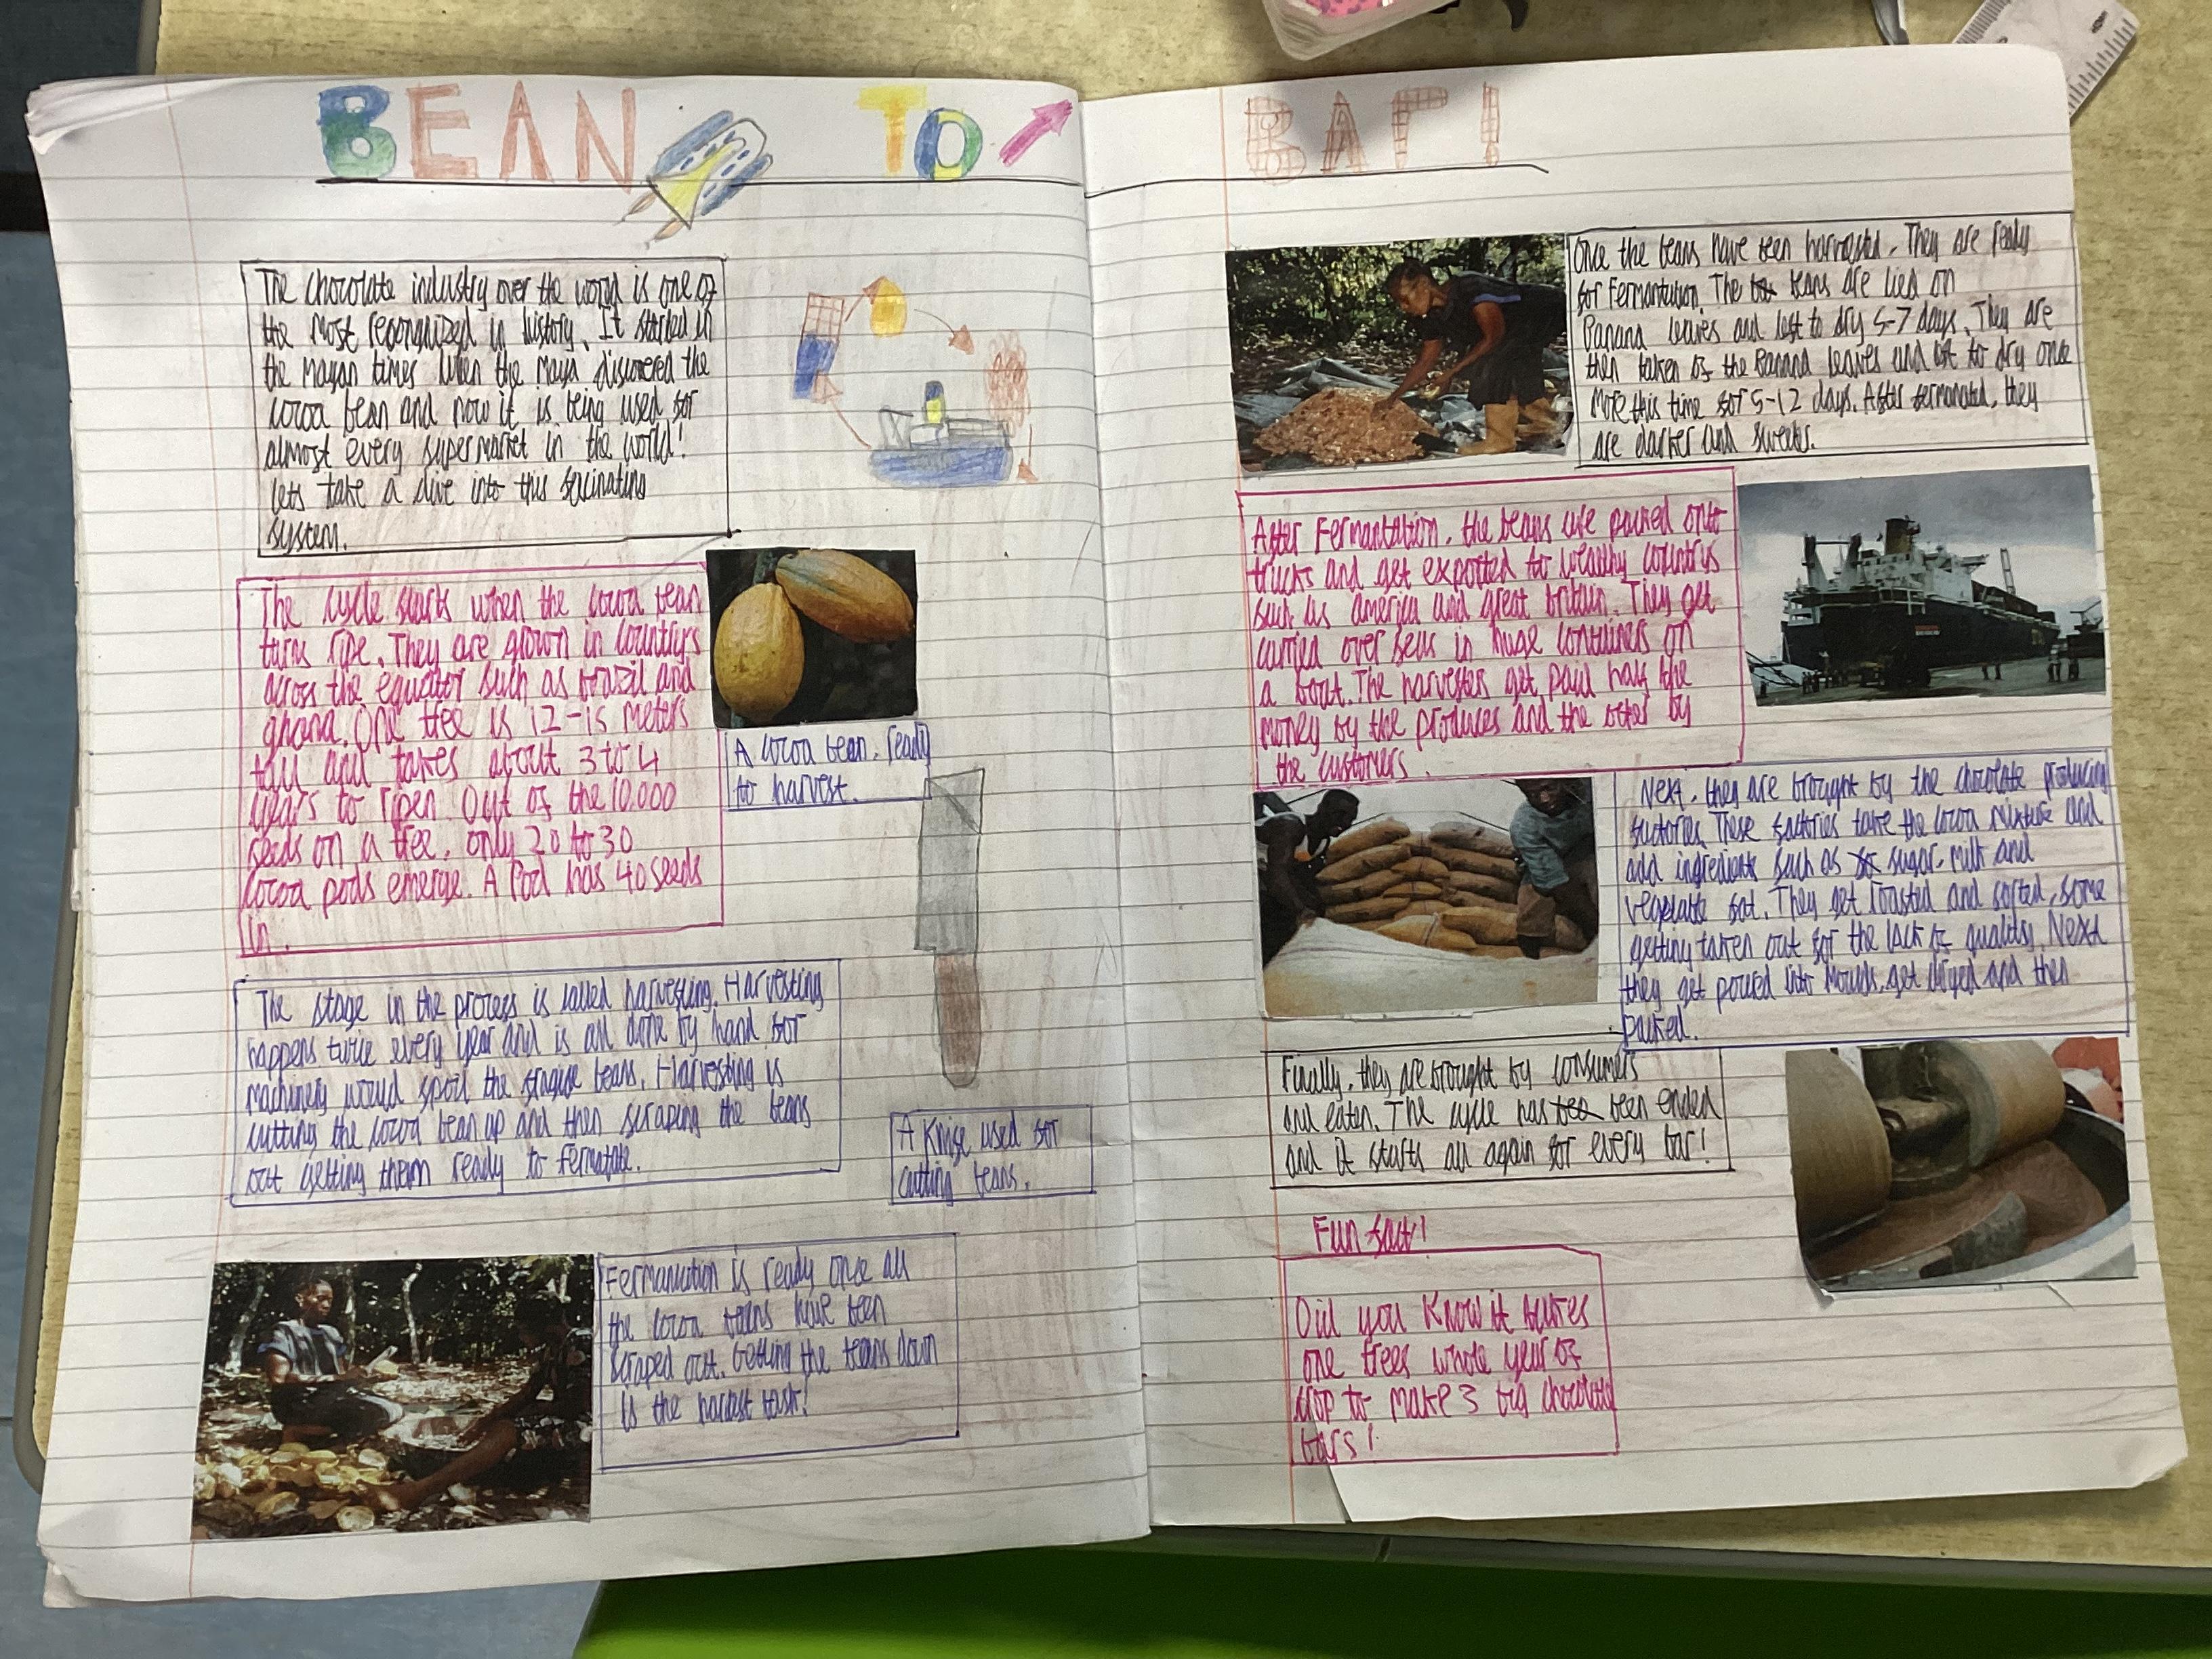 BEAN TO BAR!
The chocolate industry over the world is one of
the most recognized in history. It started in
the mayan times when the maya discovered the
cocoa bean and now it is being used for
almost every supermarket in the world!
lets take a dive into this facinating
system.
The cycle starts when the cocoa bean
turns ripe. They are grown in countrys
across the equator such as brazil and
ghana. One tree is 12-15 meters
tall and takes about 3 to 4
years to ripen. Out of the 10.000
seeds on a tree, only 20 to 30
cocoa pods emerge. A Pod has 40 seeds
in.
A cocoa bean, ready
to harvest.
The stage in the process is called harvesting. Harvesting
happens twice every year and is all done by hand for
machinery would spoil the beans. Harvesting is
cutting the cocoa bean up and then scraping the beans
out getting them ready to
A Knife used for
cutting beans.
is ready once all
the cocoa beans have been
scraped out. Getting the beans down
is the hardest task!
Once the beans have been harvested, They are ready
for Fermantation. The beans are lied on
Banana leaves and left to dry 5-7 days. They are
then taken of the Banana leaves and left to dry once
more this time for 5-12 days. After fermanated, they
are darker and
After Fermantation, the beans are packed onto
trucks and get exported to wealthy countrys
such as america and great britain. They get
carried over seas in huge containers on
a boat. The harvesters get paid half the
money by the produces and the other by
the customers.
Next, they are brought by the chocolate producing
factories. These factories take the cocoa mixture and
add ingredients such as sugar, milk and
vegetable fat. They get roasted and sorted, some
getting taken out for the lack of quality. Next
they get poured into moulds, get and then
packed.
Finally, they are brought by consumers
and eaten. The cycle has been ended
and it starts all again for every bar!
Fun fact!
Did you know it takes
one trees whole year of
crop to make 3 big chocolate
bars!